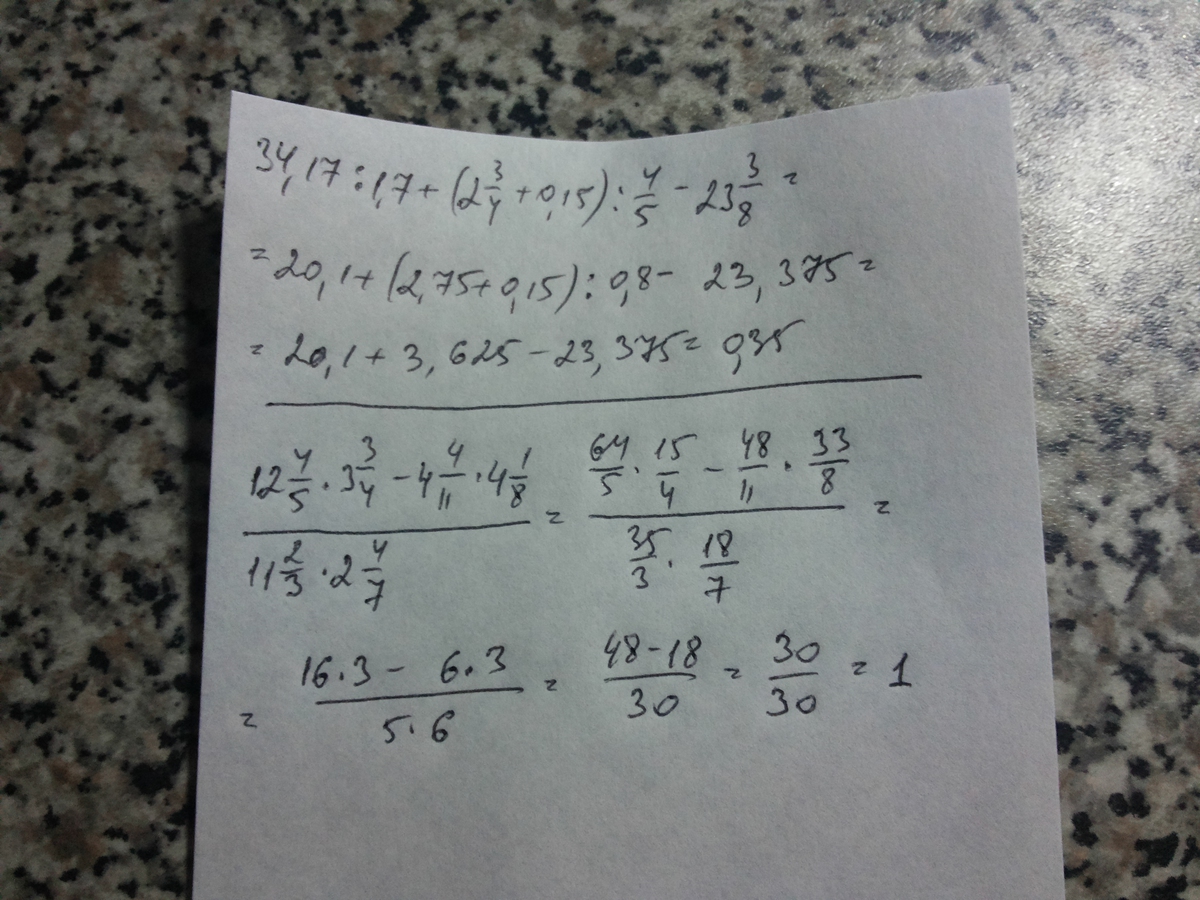 34,17:1,7+(2 3/4+0,15):4/5-23 3/8=
=20,1+(2,75+0,15):0,8-23,375=
=20,1+3,625-23,375=0,35
(12 4/5·3 3/4-4 4/11·4 1/8)/(11 2/3·2 4/7)=(64/5·15/4-48/11·33/8)/(35/3·18/7)=
=(16·3-6·3)/(5·6)=(48-18)/30=30/30=1